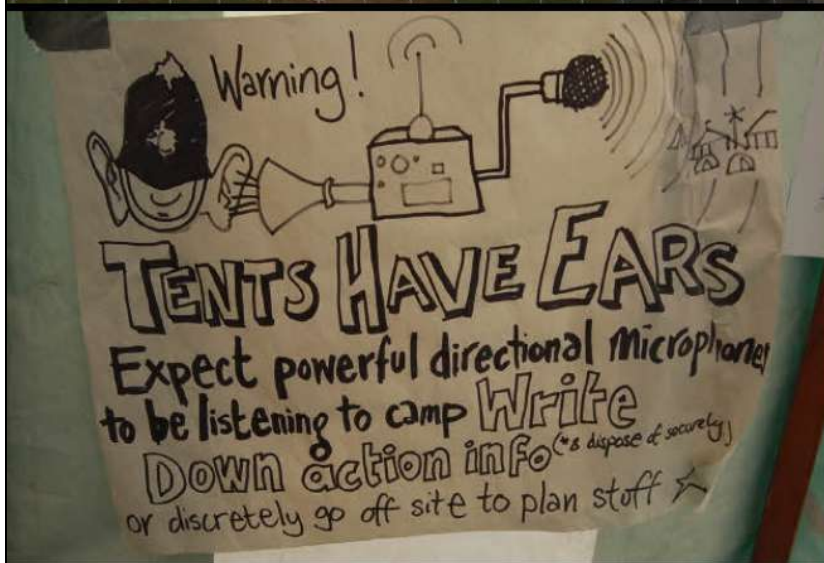 Warning!
TENTS HAVE EARS
Expect powerful directional microphones
to be listening to camp Write
Down action info (*& dispose of securely)
or discretely go off site to plan stuff